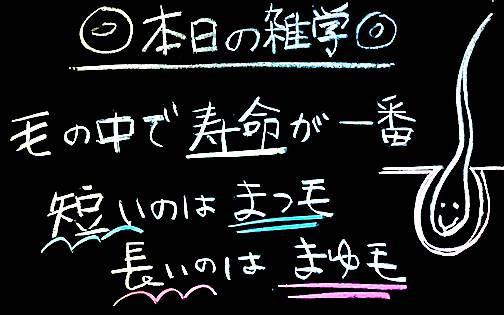 ◎本日の雑学◎
毛の中で寿命が一番
短いのはまつ毛
長いのはまゆ毛